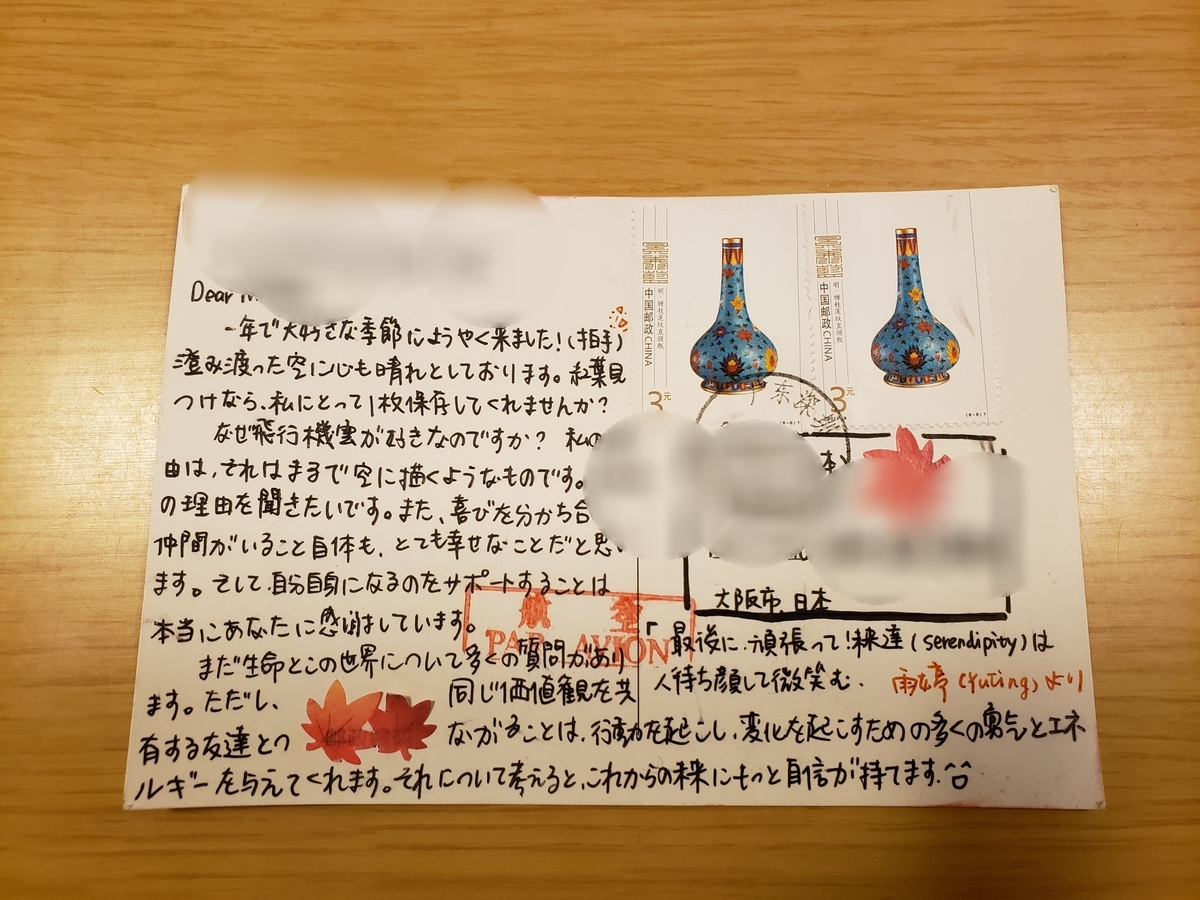 Dear
一年で大好きな季節にようやく来ました!(拍手)
澄み渡った空に心も晴れとしております。紅葉見
つけなら、私にとって1枚保存してくれませんか?
なぜ飛行機雲が好きなのですか? 私の
由は、それはまるで空に描くようなものです。
の理由を聞きたいです。また、喜びを分かち合
仲間がいること自体も、とても幸せなことだと思い
ます。そして自分自身になるのをサポートすることは
本当にあなたに感謝しています。
まだ生命とこの世界について多くの質問があり
ます。ただし、同じ価値観を共
有する友達とつながることは、行動を起こし、変化を起こすための多くの勇気とエネ
ルギーを与えてくれます。それについて考えると、これからの未来にもっと自信が持てます。
明·缠枝莲纹直颈瓶
中国邮政 CHINA
3元
明·缠枝莲纹直颈瓶
中国邮政 CHINA
3元
(6-6)T
广东深圳
本
大阪市, 日本
航空
PAR AVION
「最後に、頑張って!未達(serendipity)は
人待ち顔して微笑む.
雨婷(Yuting)より